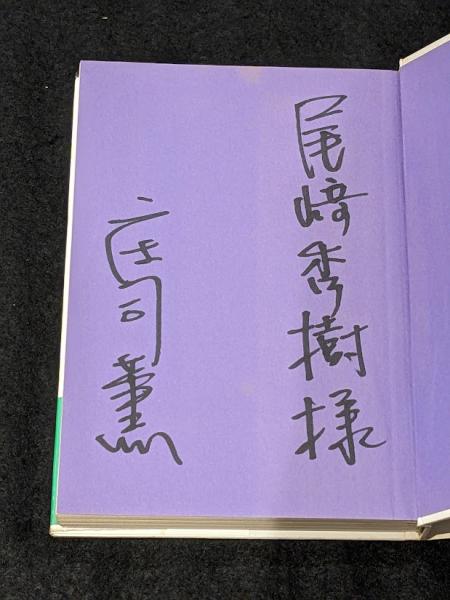 尾崎秀樹様
庄司薫